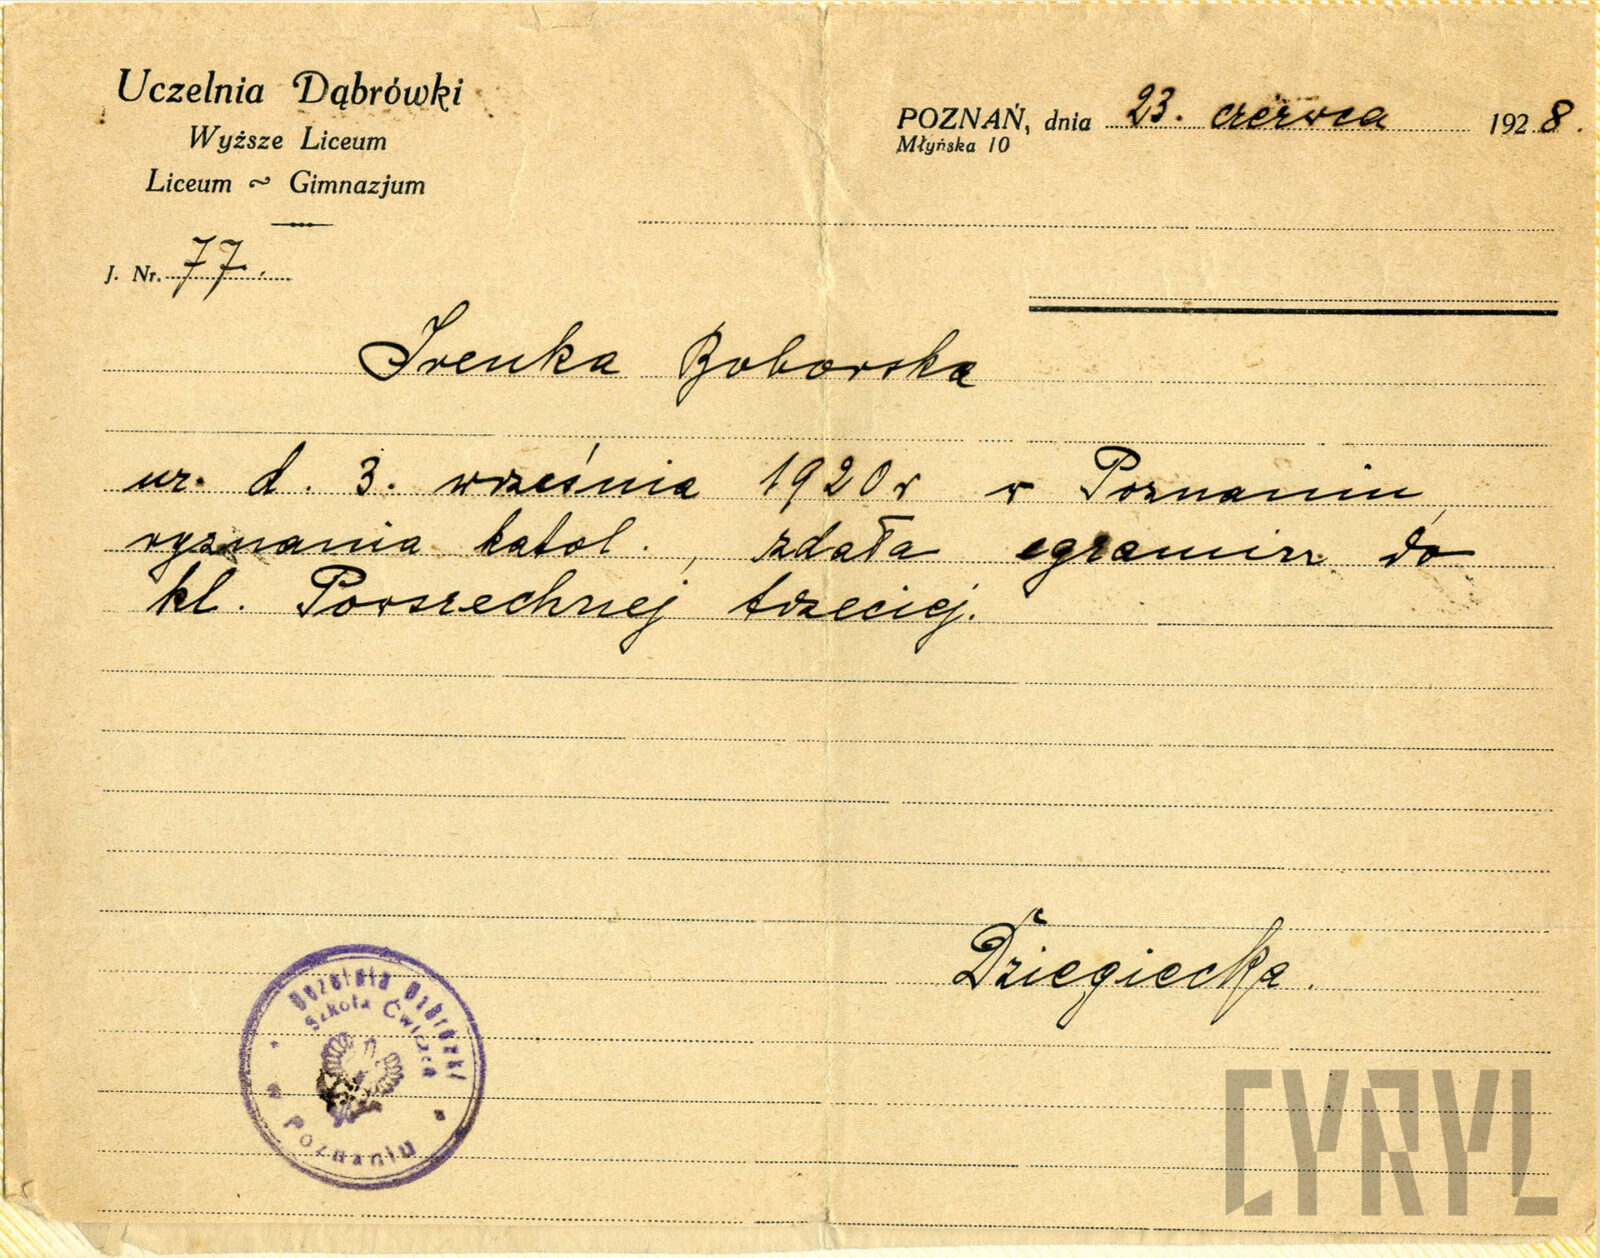 Uczelnia Dąbrówki
Wyższe Liceum
Liceum ~ Gimnazjum
POZNAŃ, dnia 23. czerwca 1928.
Młyńska 10
J. Nr. 77.
Irenka Boborska
ur. d. 3. września 1920 r w Poznaniu,
wyznania katol., zdała egzamin do
kl. Powszechnej trzeciej.
Dziegiecka.
Uczelnia Dąbrówki
Szkoła Ćwiczeń
Poznaniu
CYRYL